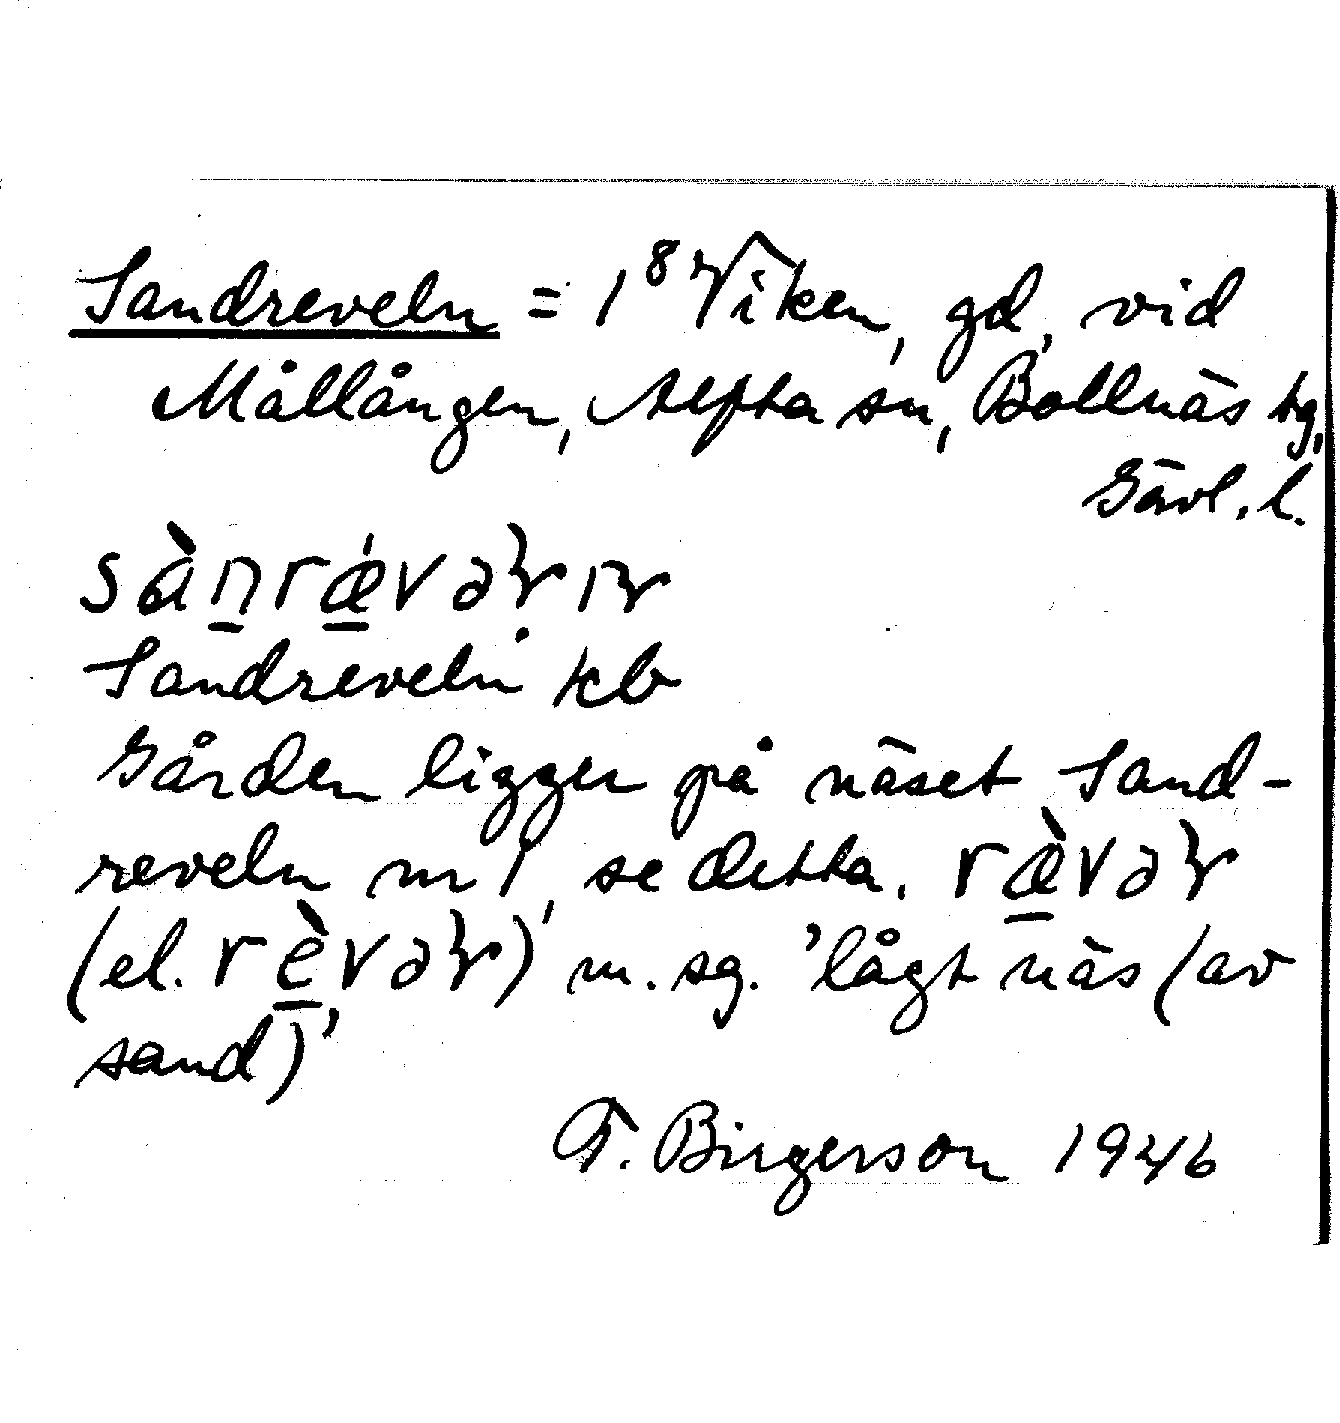 Sandreveln = 1⁸ Viken, gd, vid
Mållången, Alfta sn, Bollnäs tg,
Gävl. l.
Sandreveln kb
Gården ligger på näset Sand-
reveln m 1, se detta.
(el. m. sg. 'lågt näs (av
sand)'
T. Birgerson 1946